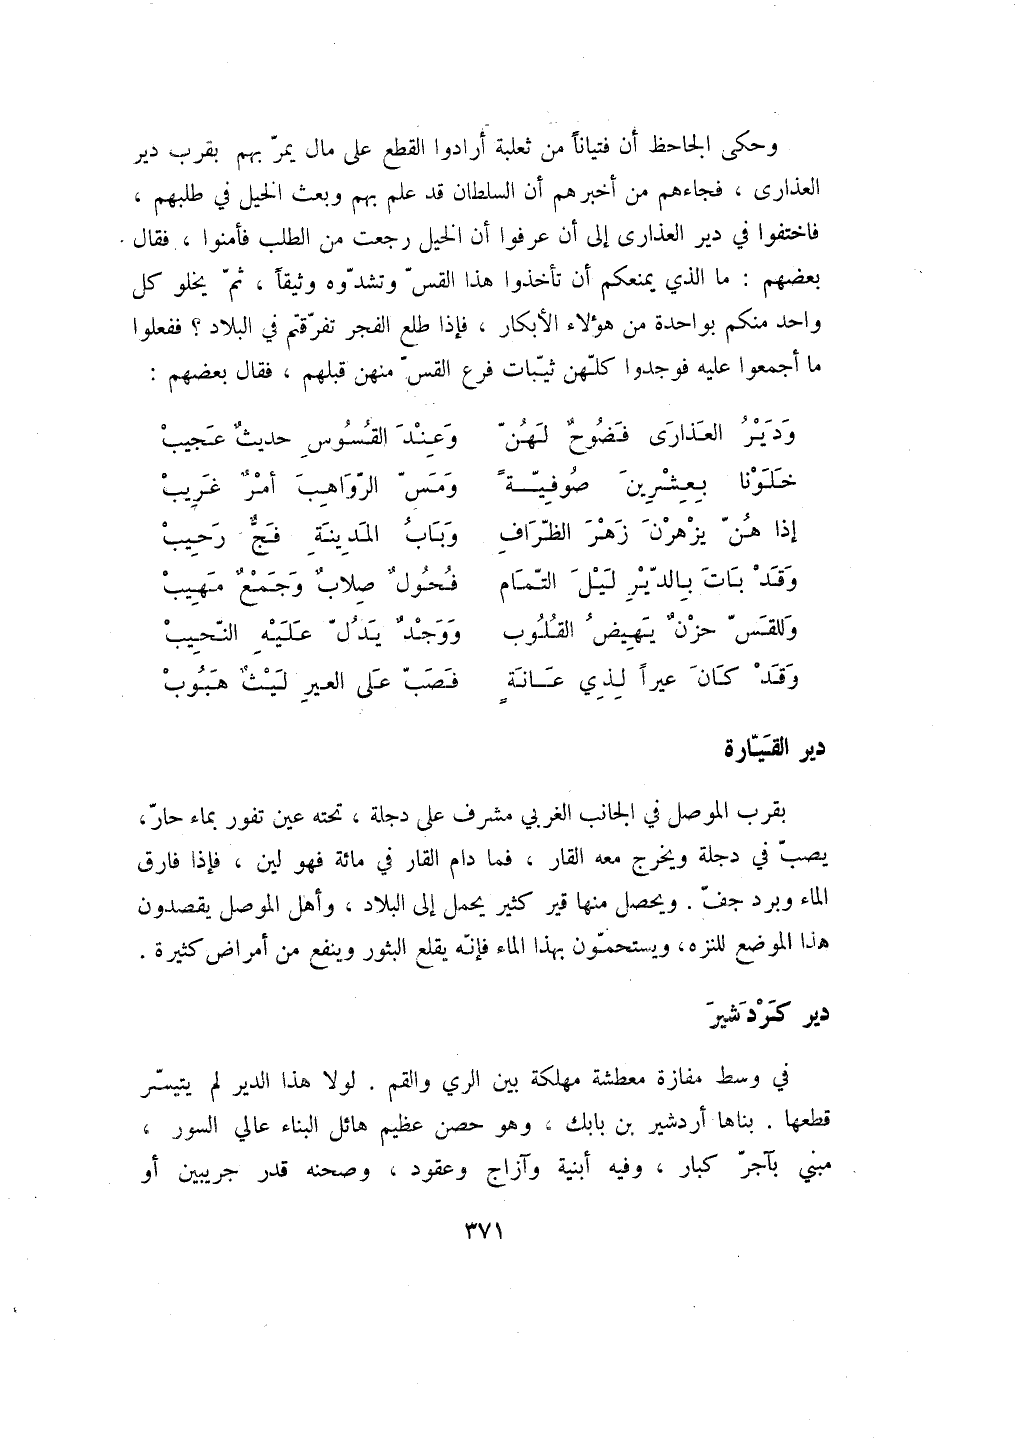 وحكى الجاحظ أن فتياناً من ثعلبة أرادوا القطع على مال يمرّ بهم بقرب دير
العذارى ، فجاءهم من أخبرهم أن السلطان قد علم بهم وبعث الخيل في طلبهم ،
فاختفوا في دير العذارى إلى أن عرفوا أن الخيل رجعت من الطلب فأمنوا ، فقال
بعضهم : ما الذي يمنعكم أن تأخذوا هذا القسّ وتشدّوه وثيقاً ، ثمّ يخلو كل
واحد منكم بواحدة من هؤلاء الأبكار ، فإذا طلع الفجر تفرّقتم في البلاد ؟ ففعلوا
ما أجمعوا عليه فوجدوا كلّهن ثيّبات فرع القسّ منهن قبلهم ، فقال بعضهم :
وَدَيْرُ العَذارَى فَضُوحٌ لَهُنّ وَعِنْدَ القُسُوسِ حديثٌ عَجيبْ
خَلَوْنا بِعِشْرِينَ صُوفِيّةً وَمَسّ الرّوَاهِبَ أمْرٌ غَرِيبْ
إذا هُنّ يزْهرْنَ زَهْرَ الظّرَافِ وَبَابُ المَدِينَةِ فَجٌّ رَحِيبْ
وَقَدْ بَاتَ بِالدّيْرِ لَيْلَ التّمَامِ فُحُولٌ صِلابٌ وَجَمْعٌ مَهِيبْ
وَللقَسّ حزْنٌ يَهِيضُ القُلُوب وَوَجْدٌ يَدُلّ عَلَيْهِ النّحِيبْ
وَقَدْ كَانَ عيراً لِذِي عَانَةٍ فَصَبّ عَلى العيرِ لَيْثٌ هَبُوبْ
دير القَيّارة
بقرب الموصل في الجانب الغربي مشرف على دجلة ، تحته عين تفور بماء حارّ،
يصبّ في دجلة ويخرج معه القار ، فما دام القار في مائة فهو لين ، فإذا فارق
الماء وبرد جفّ . ويحصل منها قير كثير يحمل إلى البلاد ، وأهل الموصل يقصدون
هذا الموضع للنزه، ويستحمّون بهذا الماء فإنّه يقلع البثور وينفع من أمراض كثيرة .
دير كَرْدَشيرَ
في وسط مفازة معطشة مهلكة بين الري والقم . لولا هذا الدير لم يتيسّر
قطعها . بناها أردشير بن بابك ، وهو حصن عظيم هائل البناء عالي السور ،
مبني بآجرّ كبار ، وفيه أبنية وآزاج وعقود ، وصحنه قدر جريبين أو
٣٧١